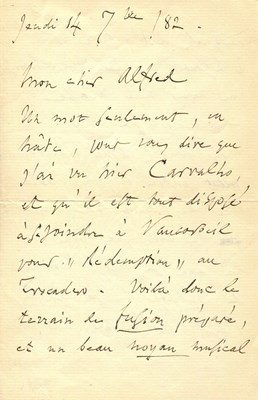 Jeudi 14 7bre /82.
Mon cher Alfred
Un mot seulement, en
hâte, pour vous dire que
j'ai vu hier Carvalho,
et qu'il est tout disposé
à se joindre à Vaucorbeil
pour "Rédemption" au
Trocadero. Voilà donc le
terrain de fusion préparé,
et un beau noyau musical